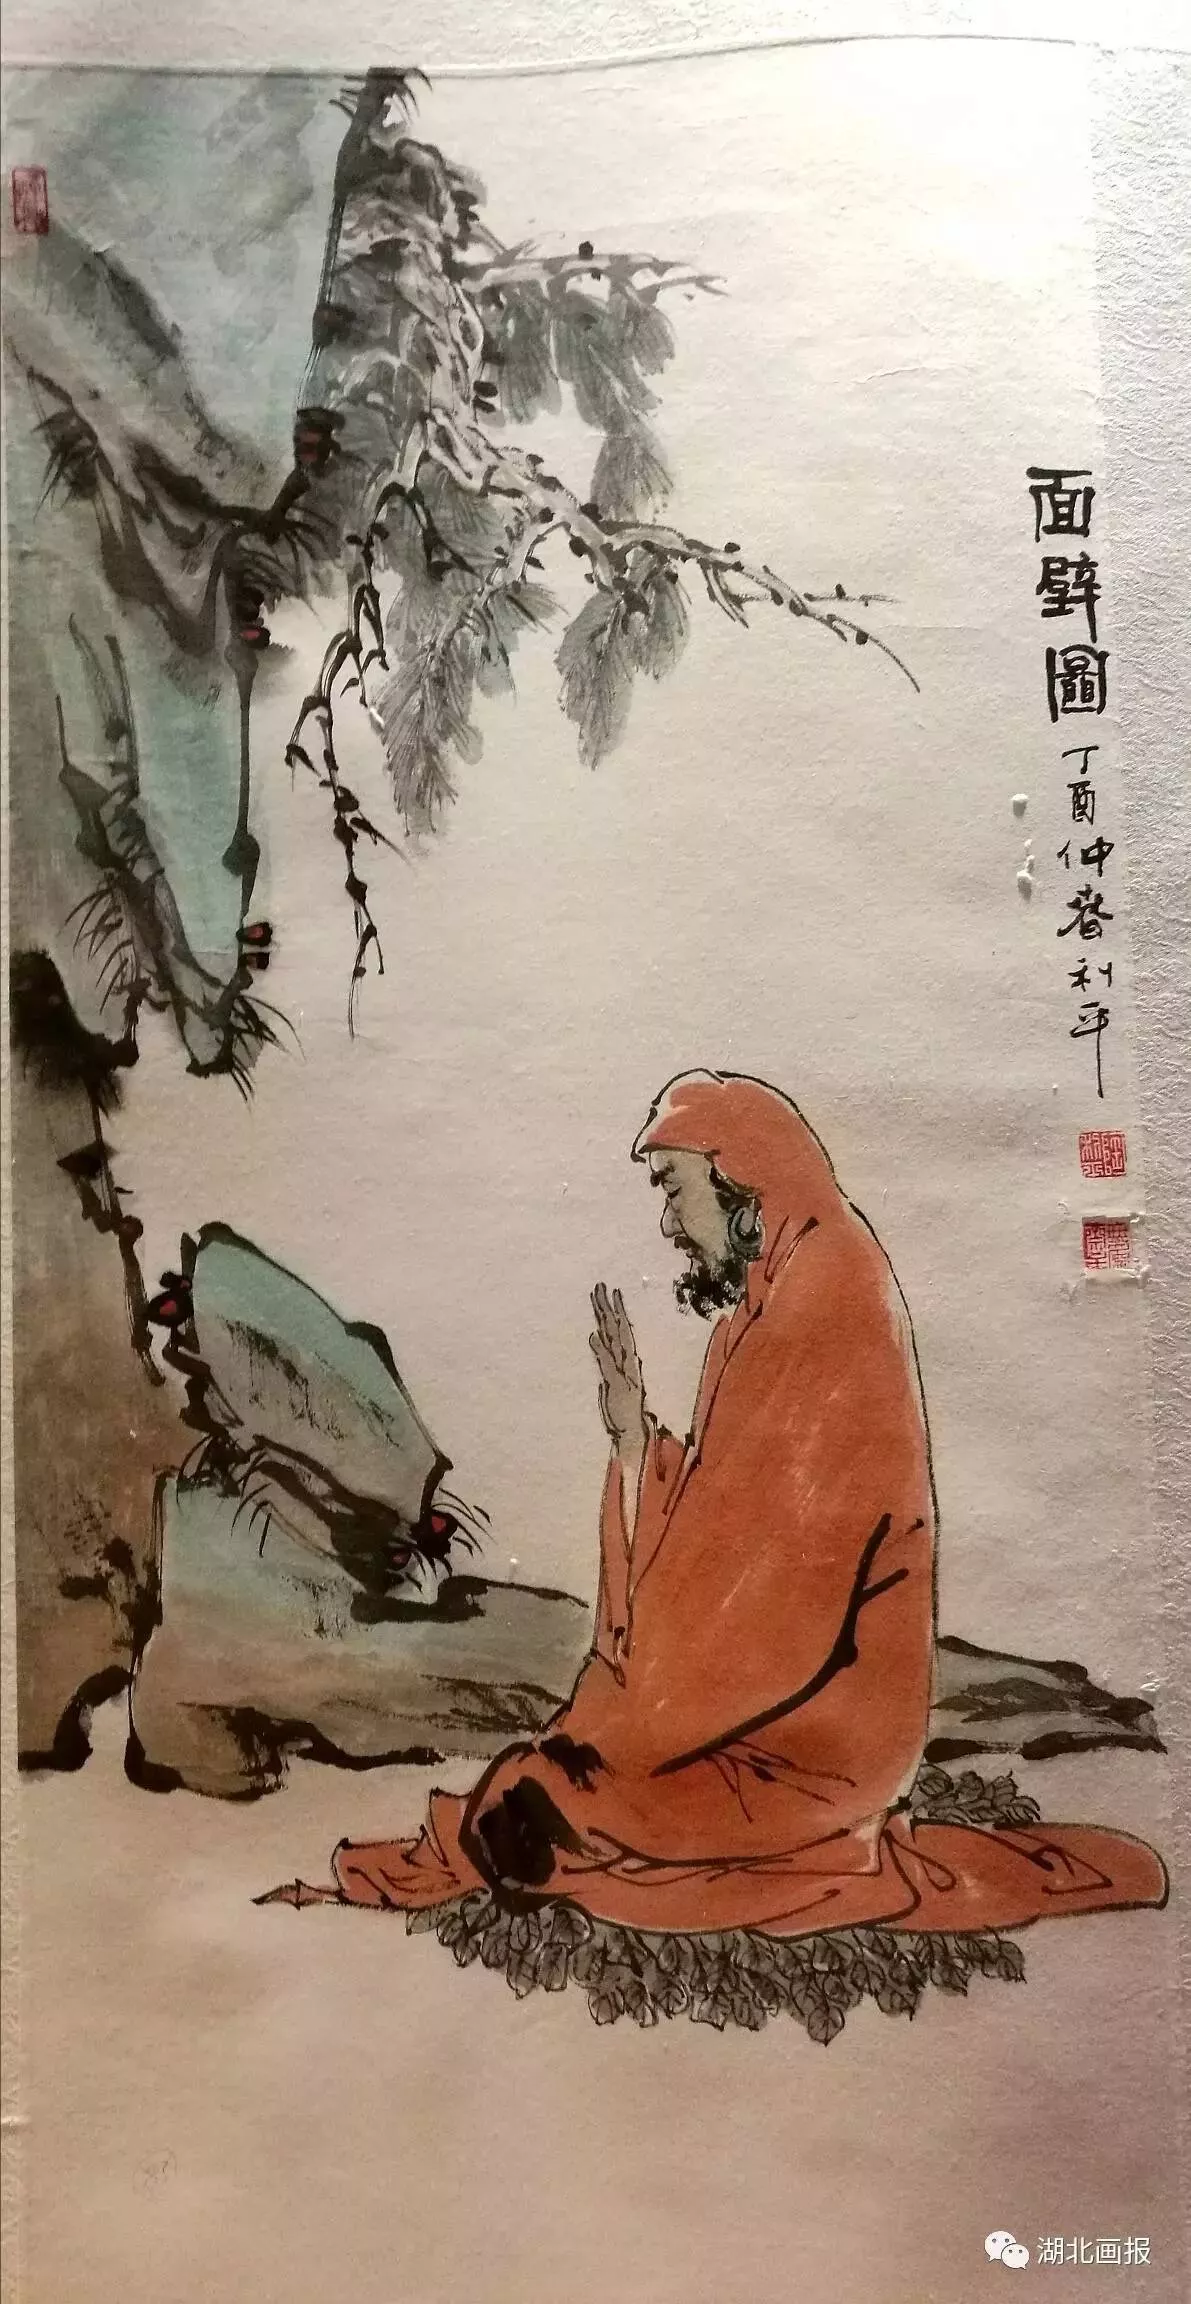 面壁圖
丁酉仲春利平
湖北画报